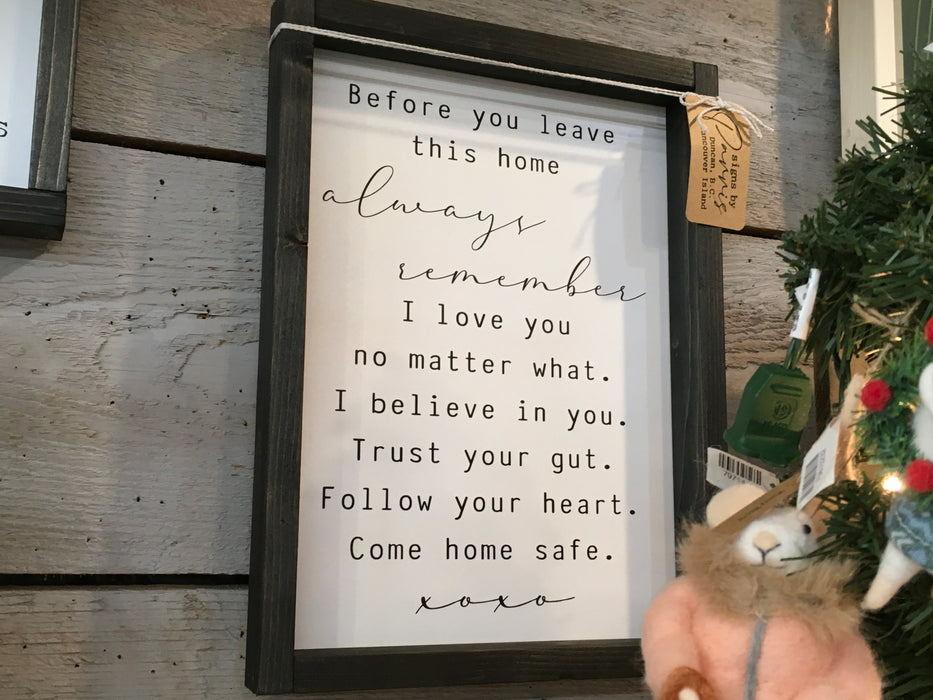 Before you leave
this home
always
remember
I love you
no matter what.
I believe in you.
Trust your gut.
Follow your heart.
Come home safe.
xoxo
signs by
Duncan, B.C.
Vancouver Island
s